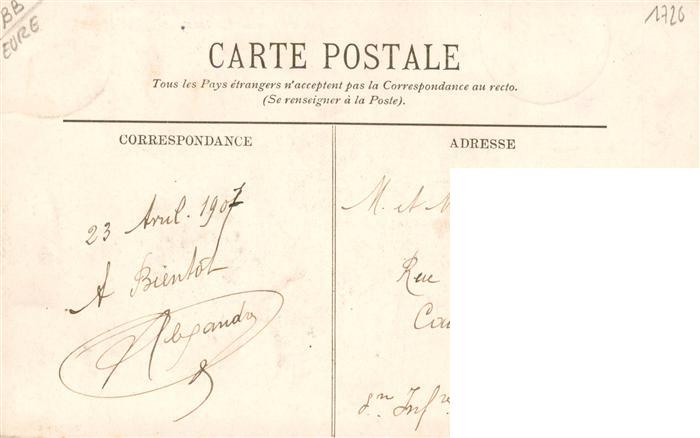 BB
EURE
1726
CARTE POSTALE
Tous les Pays étrangers n'acceptent pas la Correspondance au recto.
(Se renseigner à la Poste).
CORRESPONDANCE
23 Avril. 1907
A Bientôt
Alexandre
ADRESSE
M. et M
Rue